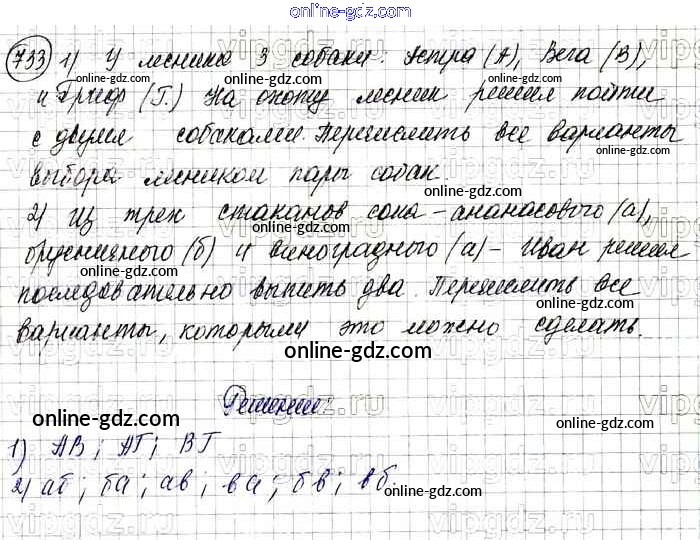 online-gdz.com
733 1) У лесника 3 собаки: Астра (А), Вега (В),
online-gdz.com online-gdz.com
и Гриф (Г.) На охоту лесник решил пойти
с двумя собаками. Перечислить все варианты
выбора лесником пары собак.
online-gdz.com
2) из трех стаканов сока - ананасового (а),
брусничного (б) и виноградного (а) - Иван решил
online-gdz.com online-gdz.com
последовательно выпить два. Перечислить все
варианты, которыми это можно сделать.
online-gdz.com
Решение:
online-gdz.com online-gdz.com
1) АВ; АГ; ВГ
online-gdz.com
2) аб; ба; ав; ва; бв; вб.
online-gdz.com
online-gdz.com
vipgdz.ru